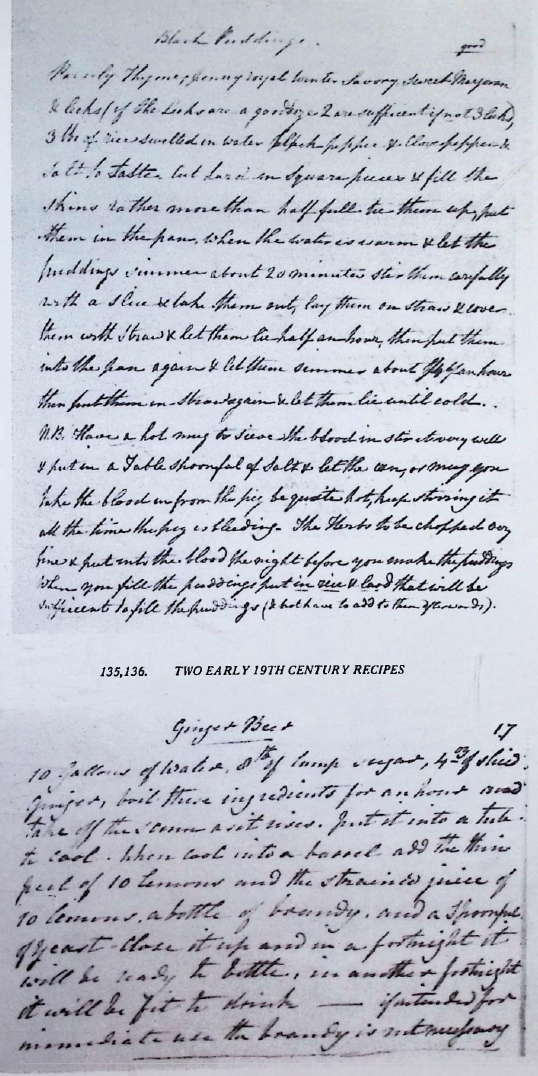 Black Puddings.
good
Parsely Thyme, penny royal winter savory sweet Marjoram
& leeks (if the Leeks are a good size 2 are sufficient if not 3 leeks,
3 lbs of rice swelled in water black pepper & clove pepper &
salt to taste cut Lard in square pieces & fill the
skins rather more than half full tie them up, put
them in the pan, when the water is warm & let the
puddings simmer about 20 minutes stir them carefully
with a slice & take them out, lay them on straw & cover
them with straw & let them lie half an hour, then put them
into the pan again & let them simmer about an hour
then put them in straw again & let them lie until cold.
N.B. Have a hot mug to the blood in stir it very well
& put in a Table spoonful of salt & let the can, or mug you
take the blood in from the pig be quite hot, keep stirring it
all the time the pig is bleeding. The Herbs to be chopped very
fine & put into the blood the night before you make the puddings
When you fill the puddings put in rice & lard that will be
sufficient to fill the puddings (& not have to add to them afterwards).
135,136. TWO EARLY 19TH CENTURY RECIPES
Ginger Beer
17
10 Gallons of Water, 8 lb of lump sugar, 4 oz of sliced
Ginger, boil these ingredients for an hour and
take off the scum as it rises. Put it into a tub
to cool. When cool into a barrel add the thin
peel of 10 lemons and the strained juice of
10 lemons, a bottle of brandy, and a spoonful
of yeast - close it up and in a fortnight it
will be ready to bottle, in another fortnight
it will be fit to drink — if intended for
immediate use the brandy is not necessary